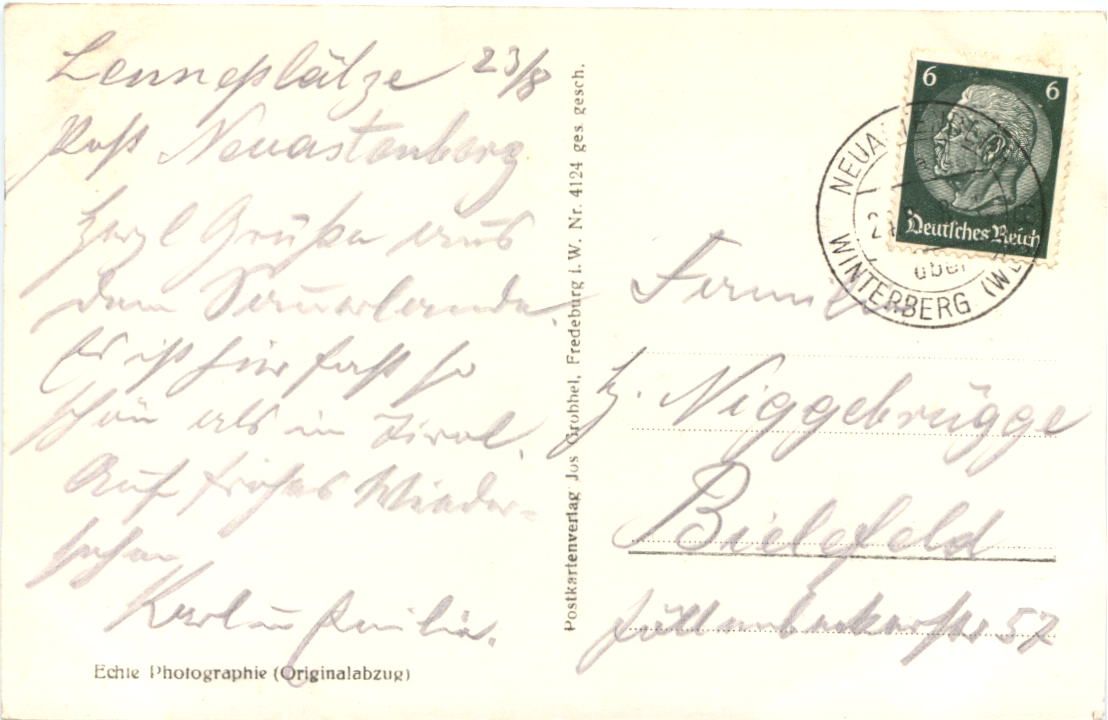 Lenneplätze 23/8
Post Neuastenberg
Herzl Grüße aus
dem Sauerlande.
Es ist hier fast so
schön als in Tirol.
Auf frohes Wieder-
sehen
Karl u Familie.
Echte Photographie (Originalabzug)
Postkartenverlag Jos Grobbel, Fredeburg i. W. Nr. 4124 ges. gesch.
6 6
Deutsches Reich
über
WINTERBERG
Familie
H. Niggebrügge
Bielefeld
Jöllenbeckerstr 57